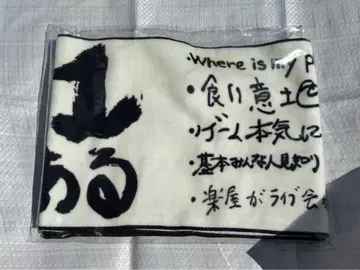 土
ある
・Where is my P
・食い意土
・ゲーム本気に
・基本みんな人見知り
・楽屋がライブ会